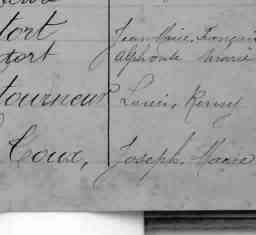 tort Jean Marie, François
tort Alphonse Marie
tourneur Lucien, Remy
Coux, Joseph, Marie